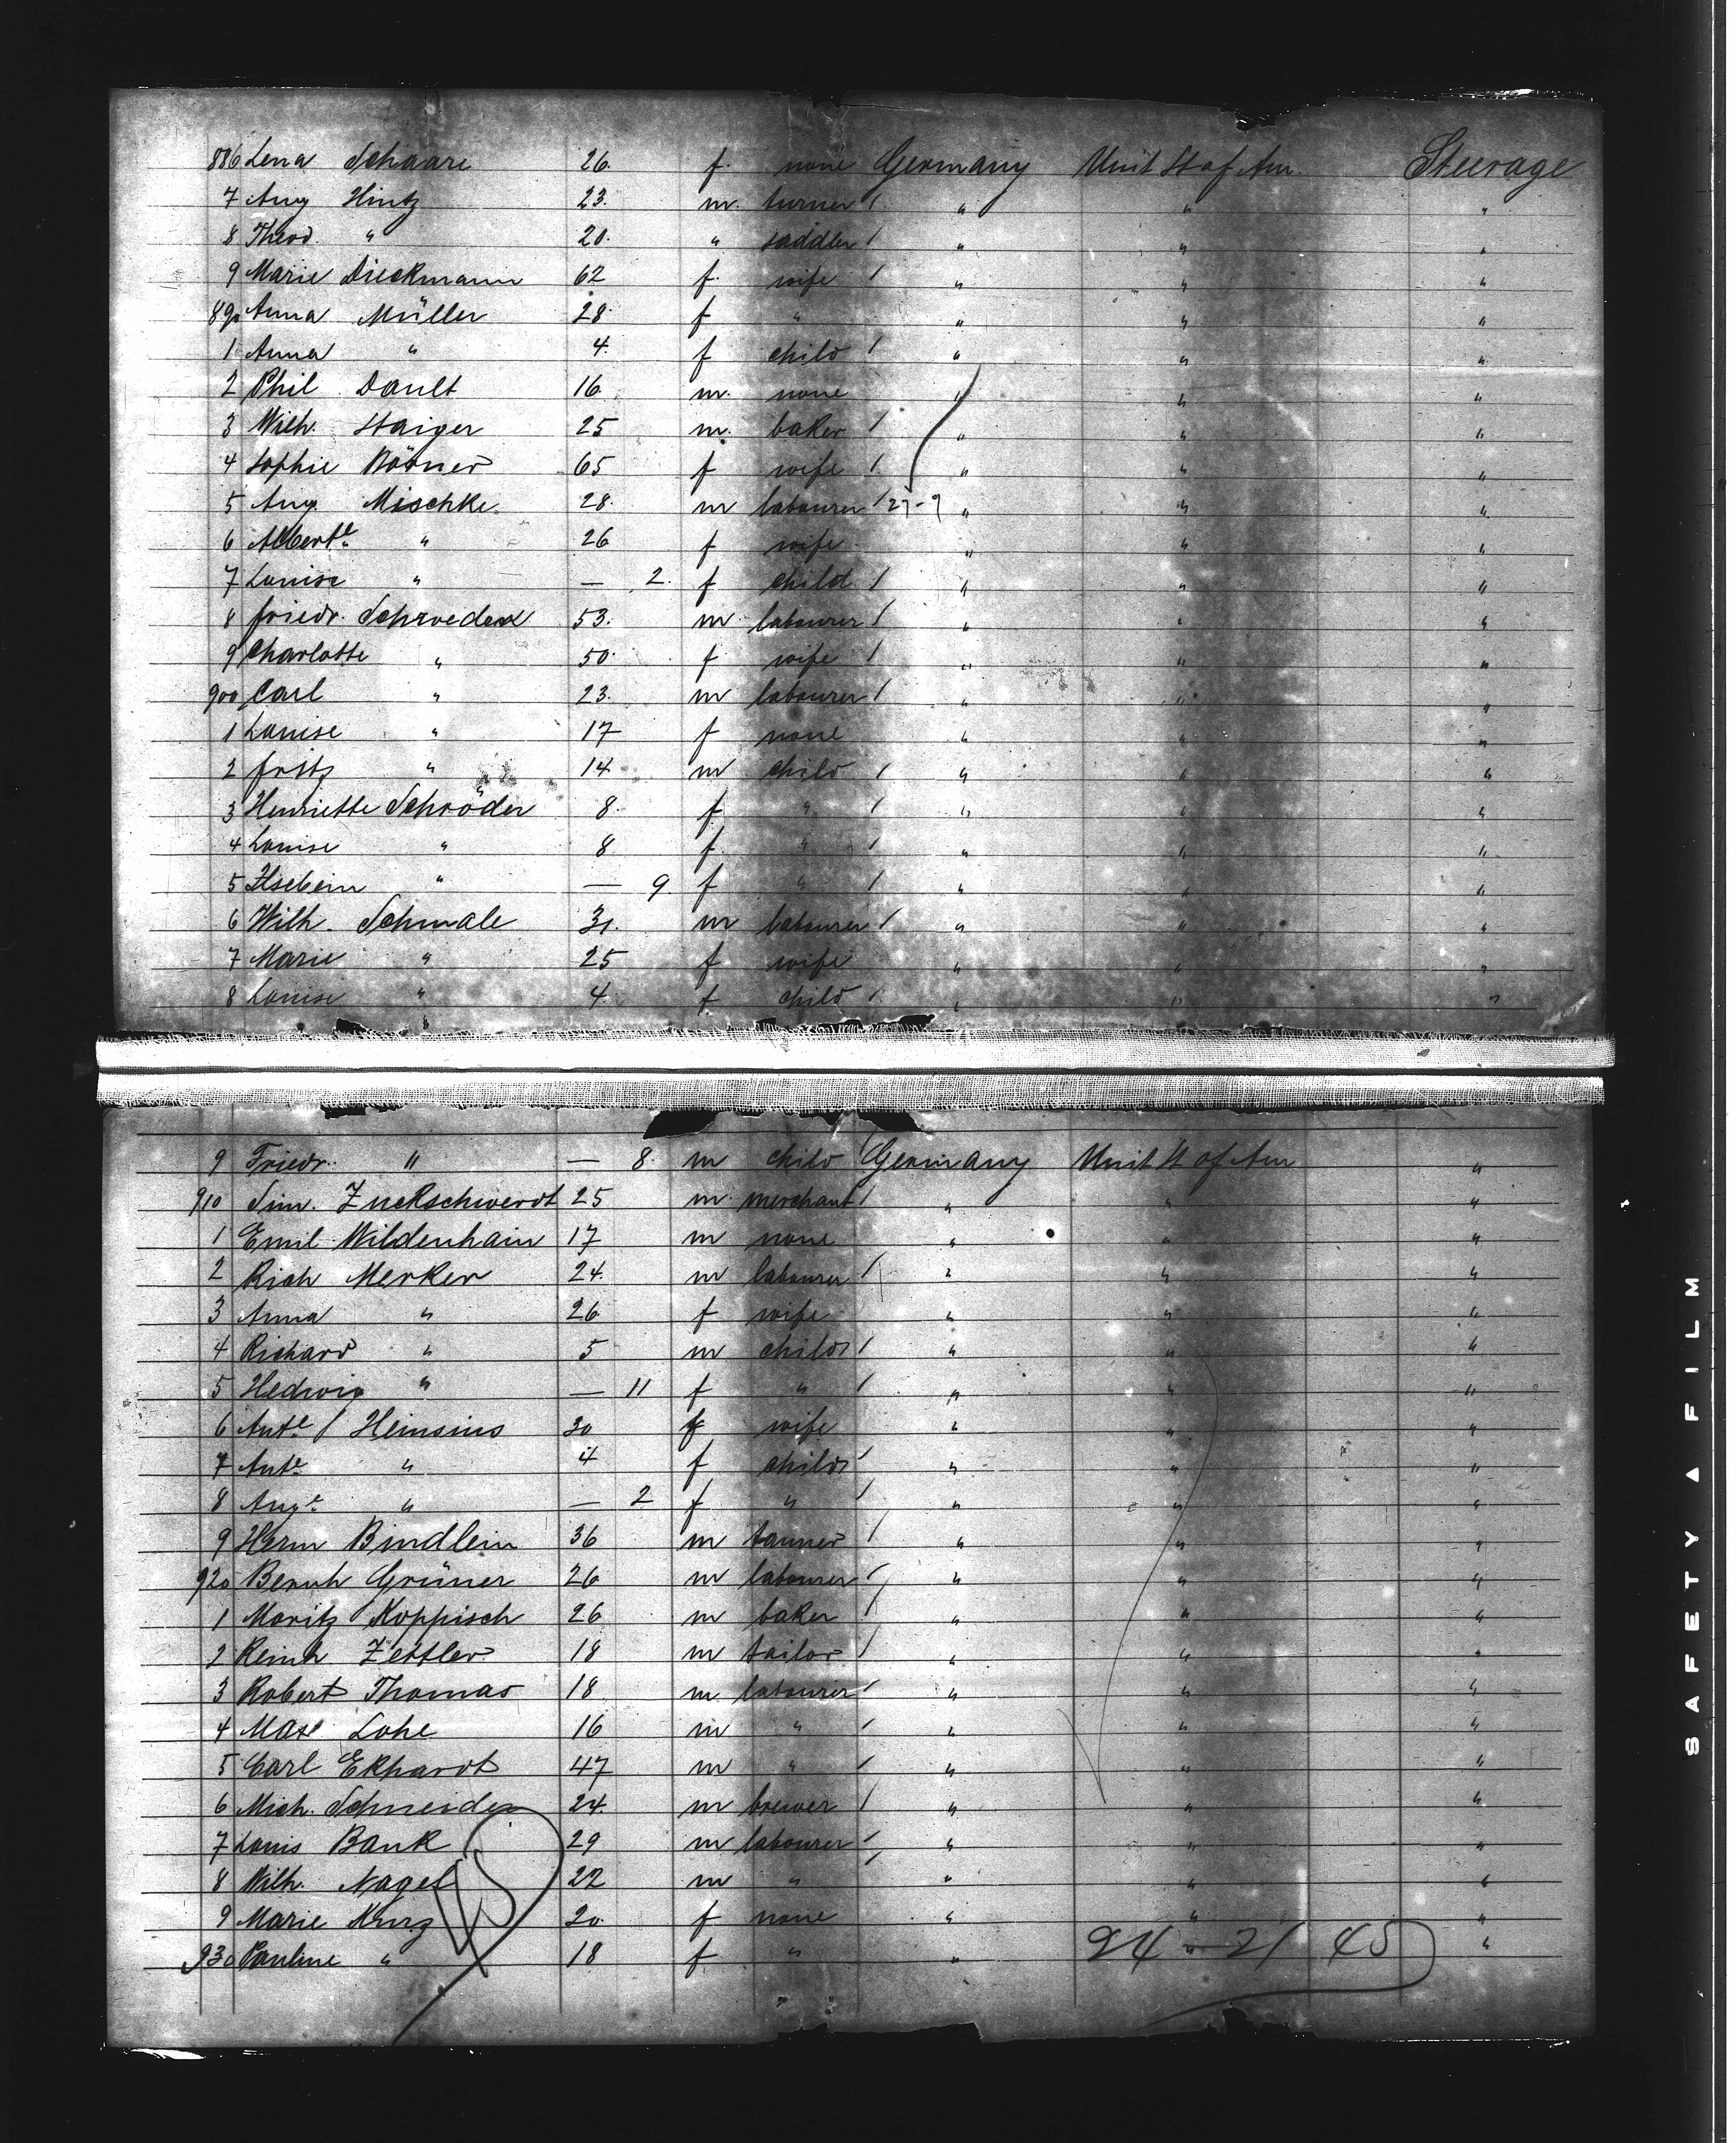 886 Lena Schaare 26. f. none Germany Unit St of Am. Steerage
7 Aug Hintz 23. m. turner / " " "
8 Theod. " 20. " saddler / " " "
9 Marie Dieckmann 62 f. wife / " " "
890 Anna Müller 28. f " " " "
1 Anna " 4. f child / " " "
2 Phil Dault 16 m. none " " "
3 Wilh. Staiger 25 m. baker / " " "
4 Sophie 65 f wife / " " "
5 Aug. Mischke 28. m labourer / 27-9 " " "
6 Albert.e " 26 f wife " " "
7 Louise " — 2. f child / " " "
8 Friedr. Schroeder 53. m labourer / " " "
9 Charlotte " 50. f wife / " " "
900 Carl " 23. m labourer / " " "
1 Louise " 17 f none " " "
2 Fritz " 14 m child / " " "
3 Henriette Schröder 8. f " / " " "
4 Louise " 8 f. " / " " "
5 " — 9. f " / " " "
6 Wilh. Schmale 31. m labourer / " " "
7 Marie " 25 f wife " " "
8 Louise " 4. f child / " " "
9 Friedr. " — 8. m child Germany Unit St of Am "
910 Sim. Zuckschwerdt 25 m. merchant / " " "
1 Emil Wildenhain 17 m none " " "
2 Rich Merker 24. m labourer / " " "
3 Anna " 26 f wife " " "
4 Richard " 5 m child / " " "
5 Hedwig " — 11 f " / " " "
6 Ant.e Heinsius 30 f wife " " "
7 Ant.e " 4 f child / " " "
8 Aug.e " — 2 f " / " " "
9 Herm Bindlein 36 m tanner / " " "
920 Bernh Grüner 26 m labourer / " " "
1 Moritz Koppisch 26 m baker / " " "
2 Reinh Zettler 18 m tailor / " " "
3 Robert Thomas 18 m labourer / " " "
4 Max Lohe 16 m " / " " "
5 Carl Ekhardt 47 m " / " " "
6 Mich. Schneider 24. m brewer / " " "
7 Louis Bank 29 m labourer / " " "
8 Wilh. Nagel 22 m " / " " "
9 Marie Kurz 20. f none " " "
930 Pauline " 18 f " " 24 - 21 45 "
SAFETY ▲ FILM